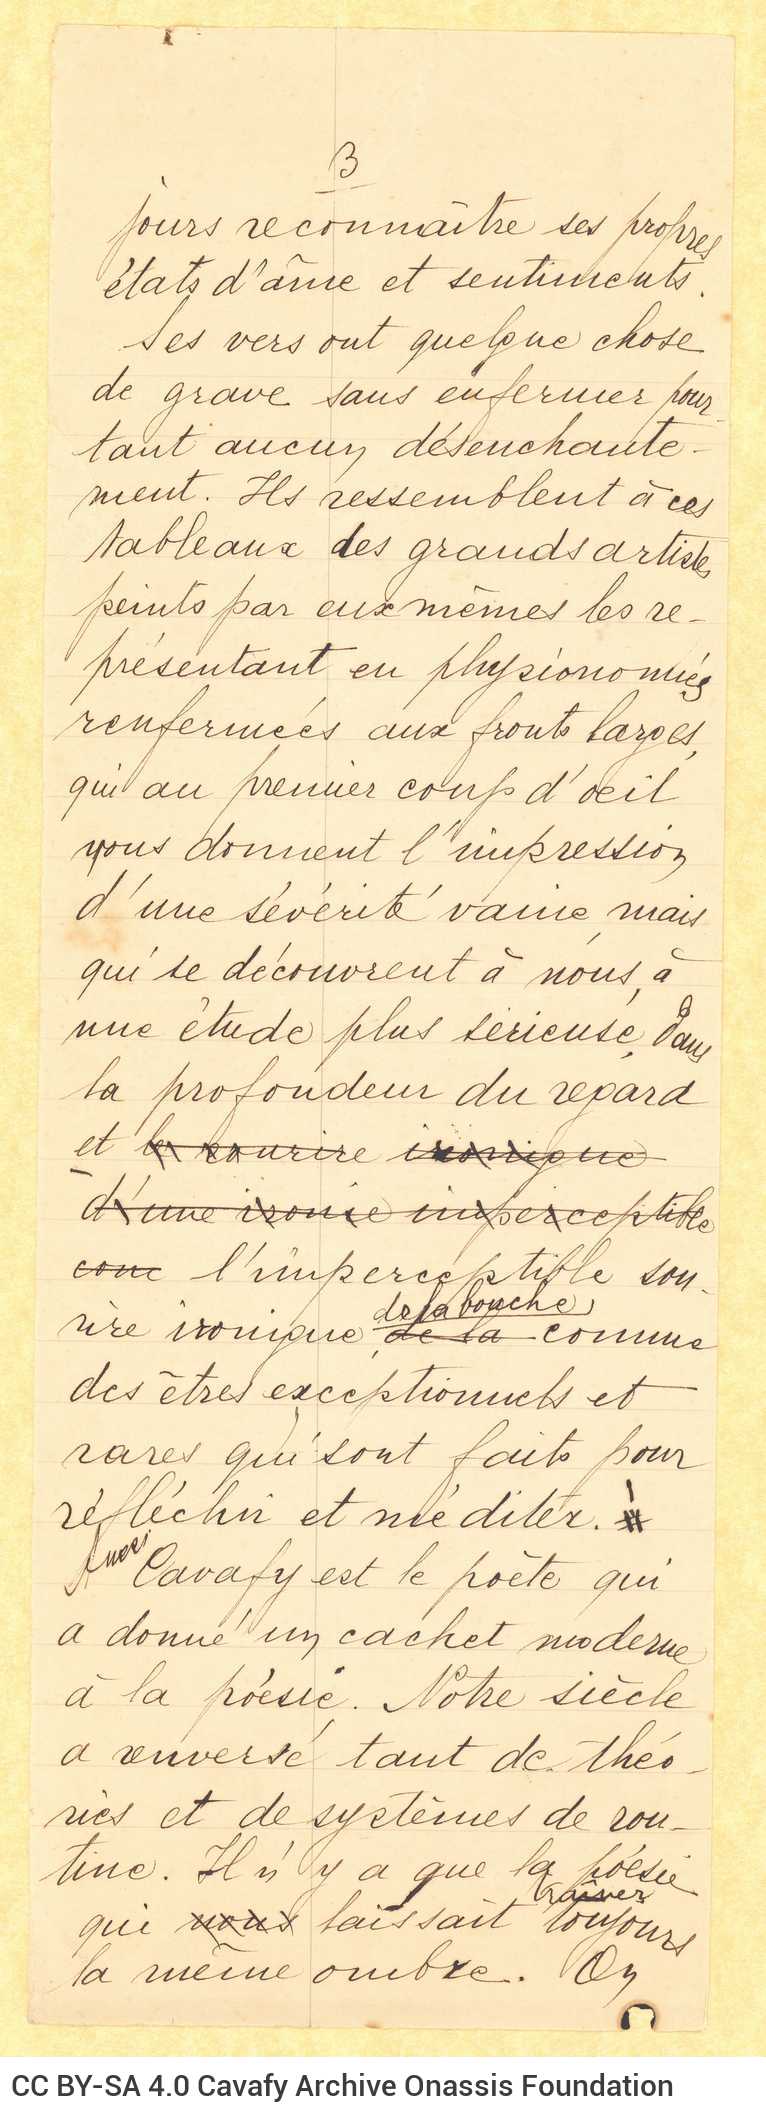 3
jours reconnaître ses propres
états d'âme et sentiments.
Ses vers ont quelque chose
de grave sans enfermer pour-
tant aucun désenchante-
ment. Ils ressemblent à ces
tableaux des grands artistes
peints par eux mêmes les re-
présentant en physionomies
renfermées aux fronts larges,
qui au premier coup d'oeil
vous donnent l'impression
d'une sévérité vaine, mais
qui se découvrent à nous, à
une étude plus sérieuse, dans
la profondeur du regard
et le sourire ironique
d'une ironie imperceptible
com l'imperceptible sou-
de la bouche,
rire ironique, de la comme
des êtres exceptionnels et
rares qui sont faits pour
réfléchir et méditer.
Aussi Cavafy est le poète qui
a donné un cachet moderne
à la poésie. Notre siècle
a renversé tant de théo-
ries et de systèmes de rou-
tine. Il n'y a que la poésie
traîner
qui nous laissait toujours
la même ombre. On
CC BY-SA 4.0 Cavafy Archive Onassis Foundation